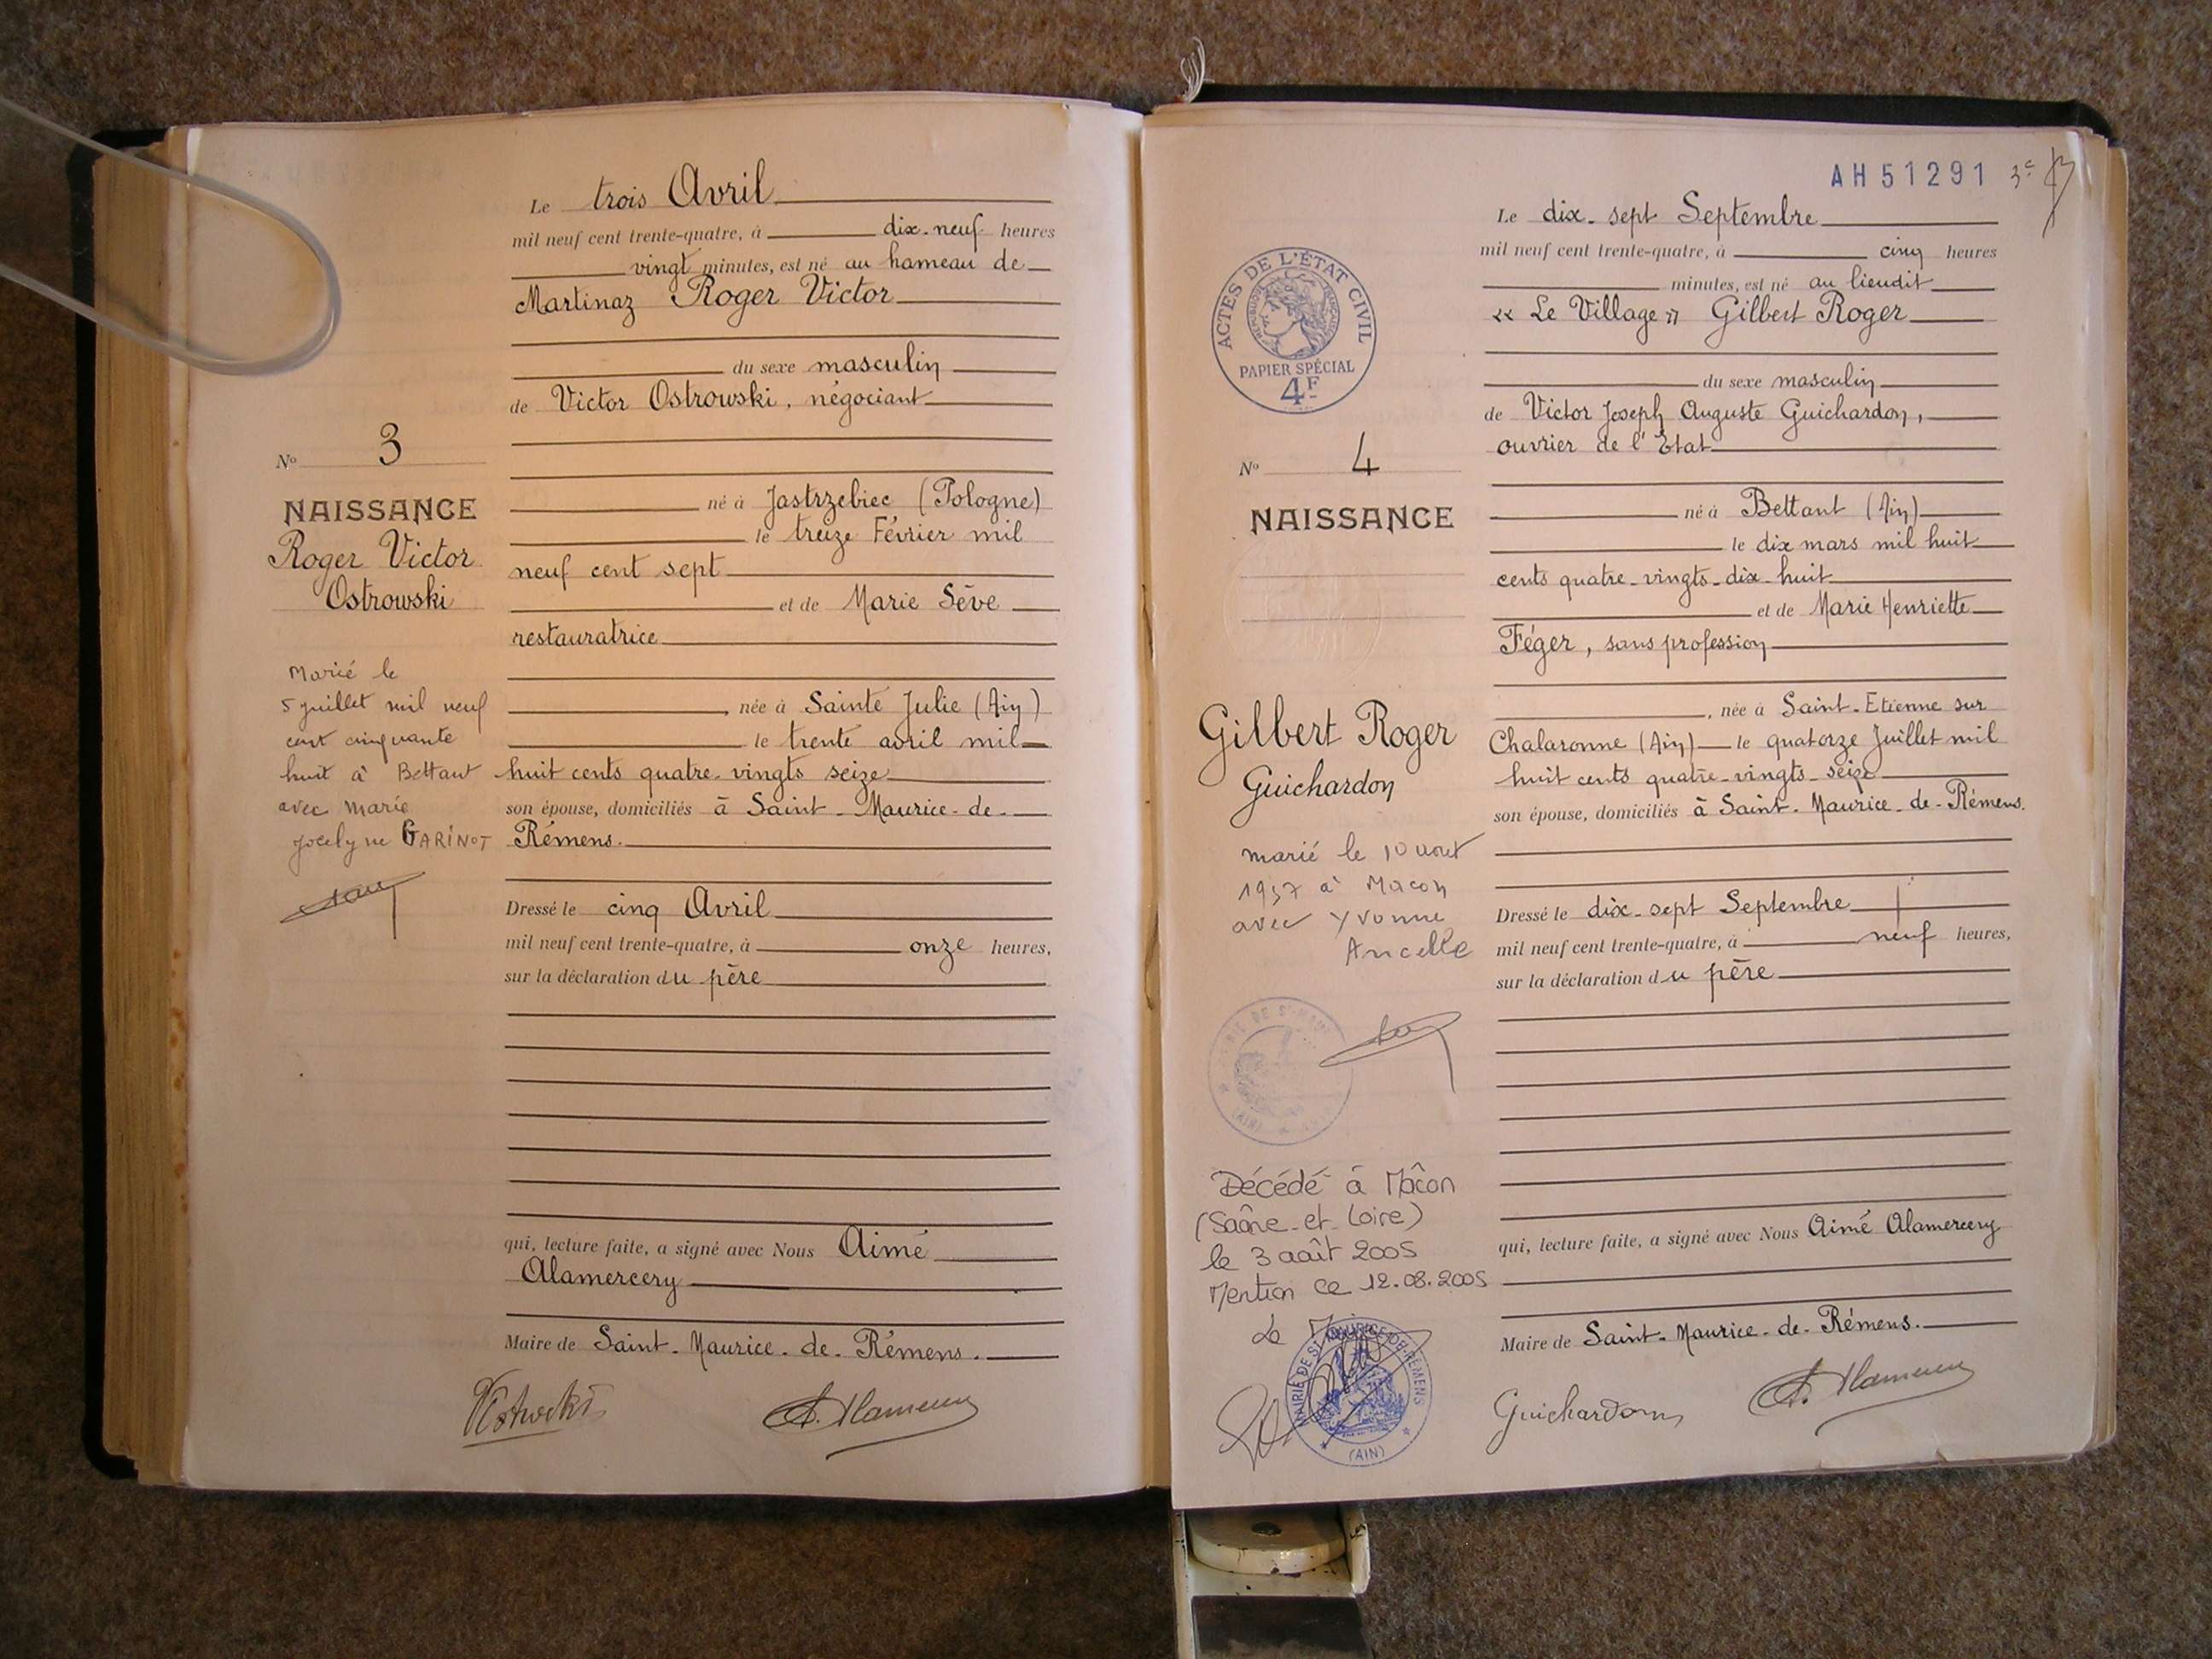 Le trois Avril
mil neuf cent trente-quatre, à dix-neuf heures
vingt minutes, est né au hameau de
Martinaz Roger Victor
du sexe masculin
de Victor Ostrowski, négociant
né à Jastrzebiec (Pologne)
le treize Février mil
neuf cent sept
et de Marie Sève
restauratrice
, née à Sainte Julie (Ain)
le trente avril mil
huit cents quatre-vingts seize
son épouse, domiciliés à Saint-Maurice-de-
Rémens.
Dressé le cinq Avril
mil neuf cent trente-quatre, à onze heures,
sur la déclaration du père
qui, lecture faite, a signé avec Nous Aimé
Alamercery
Maire de Saint-Maurice-de-Rémens.
No 3
NAISSANCE
Roger Victor
Ostrowski
Marié le
5 juillet mil neuf
cent cinquante
huit à Bettant
avec Marie
Jocelyne GARINOT
AH51291 3e
Le dix-sept Septembre
mil neuf cent trente-quatre, à cinq heures
minutes, est né au lieudit
« Le Village » Gilbert Roger
du sexe masculin
de Victor Joseph Auguste Guichardon,
ouvrier de l'Etat
né à Bettant (Ain)
le dix mars mil huit
cents quatre-vingts-dix-huit
et de Marie Henriette
Féger, sans profession
, née à Saint-Etienne sur
Chalaronne (Ain) le quatorze Juillet mil
huit cents quatre-vingts-seize
son épouse, domiciliés à Saint-Maurice-de-Rémens.
Dressé le dix-sept Septembre
mil neuf cent trente-quatre, à neuf heures,
sur la déclaration du père
qui, lecture faite, a signé avec Nous Aimé Alamercery
Maire de Saint-Maurice-de-Rémens.
Guichardon
ACTES DE L'ÉTAT CIVIL
RÉPUBLIQUE FRANÇAISE
PAPIER SPÉCIAL
4F
No 4
NAISSANCE
Gilbert Roger
Guichardon
marié le 10 août
1957 à Macon
avec Yvonne
Ancelle
Décédé à Mâcon
(Saône-et-Loire)
le 3 août 2005
Mention ce 12.08.2005
MAIRIE DE ST MAURICE-DE-RÉMENS
(AIN)